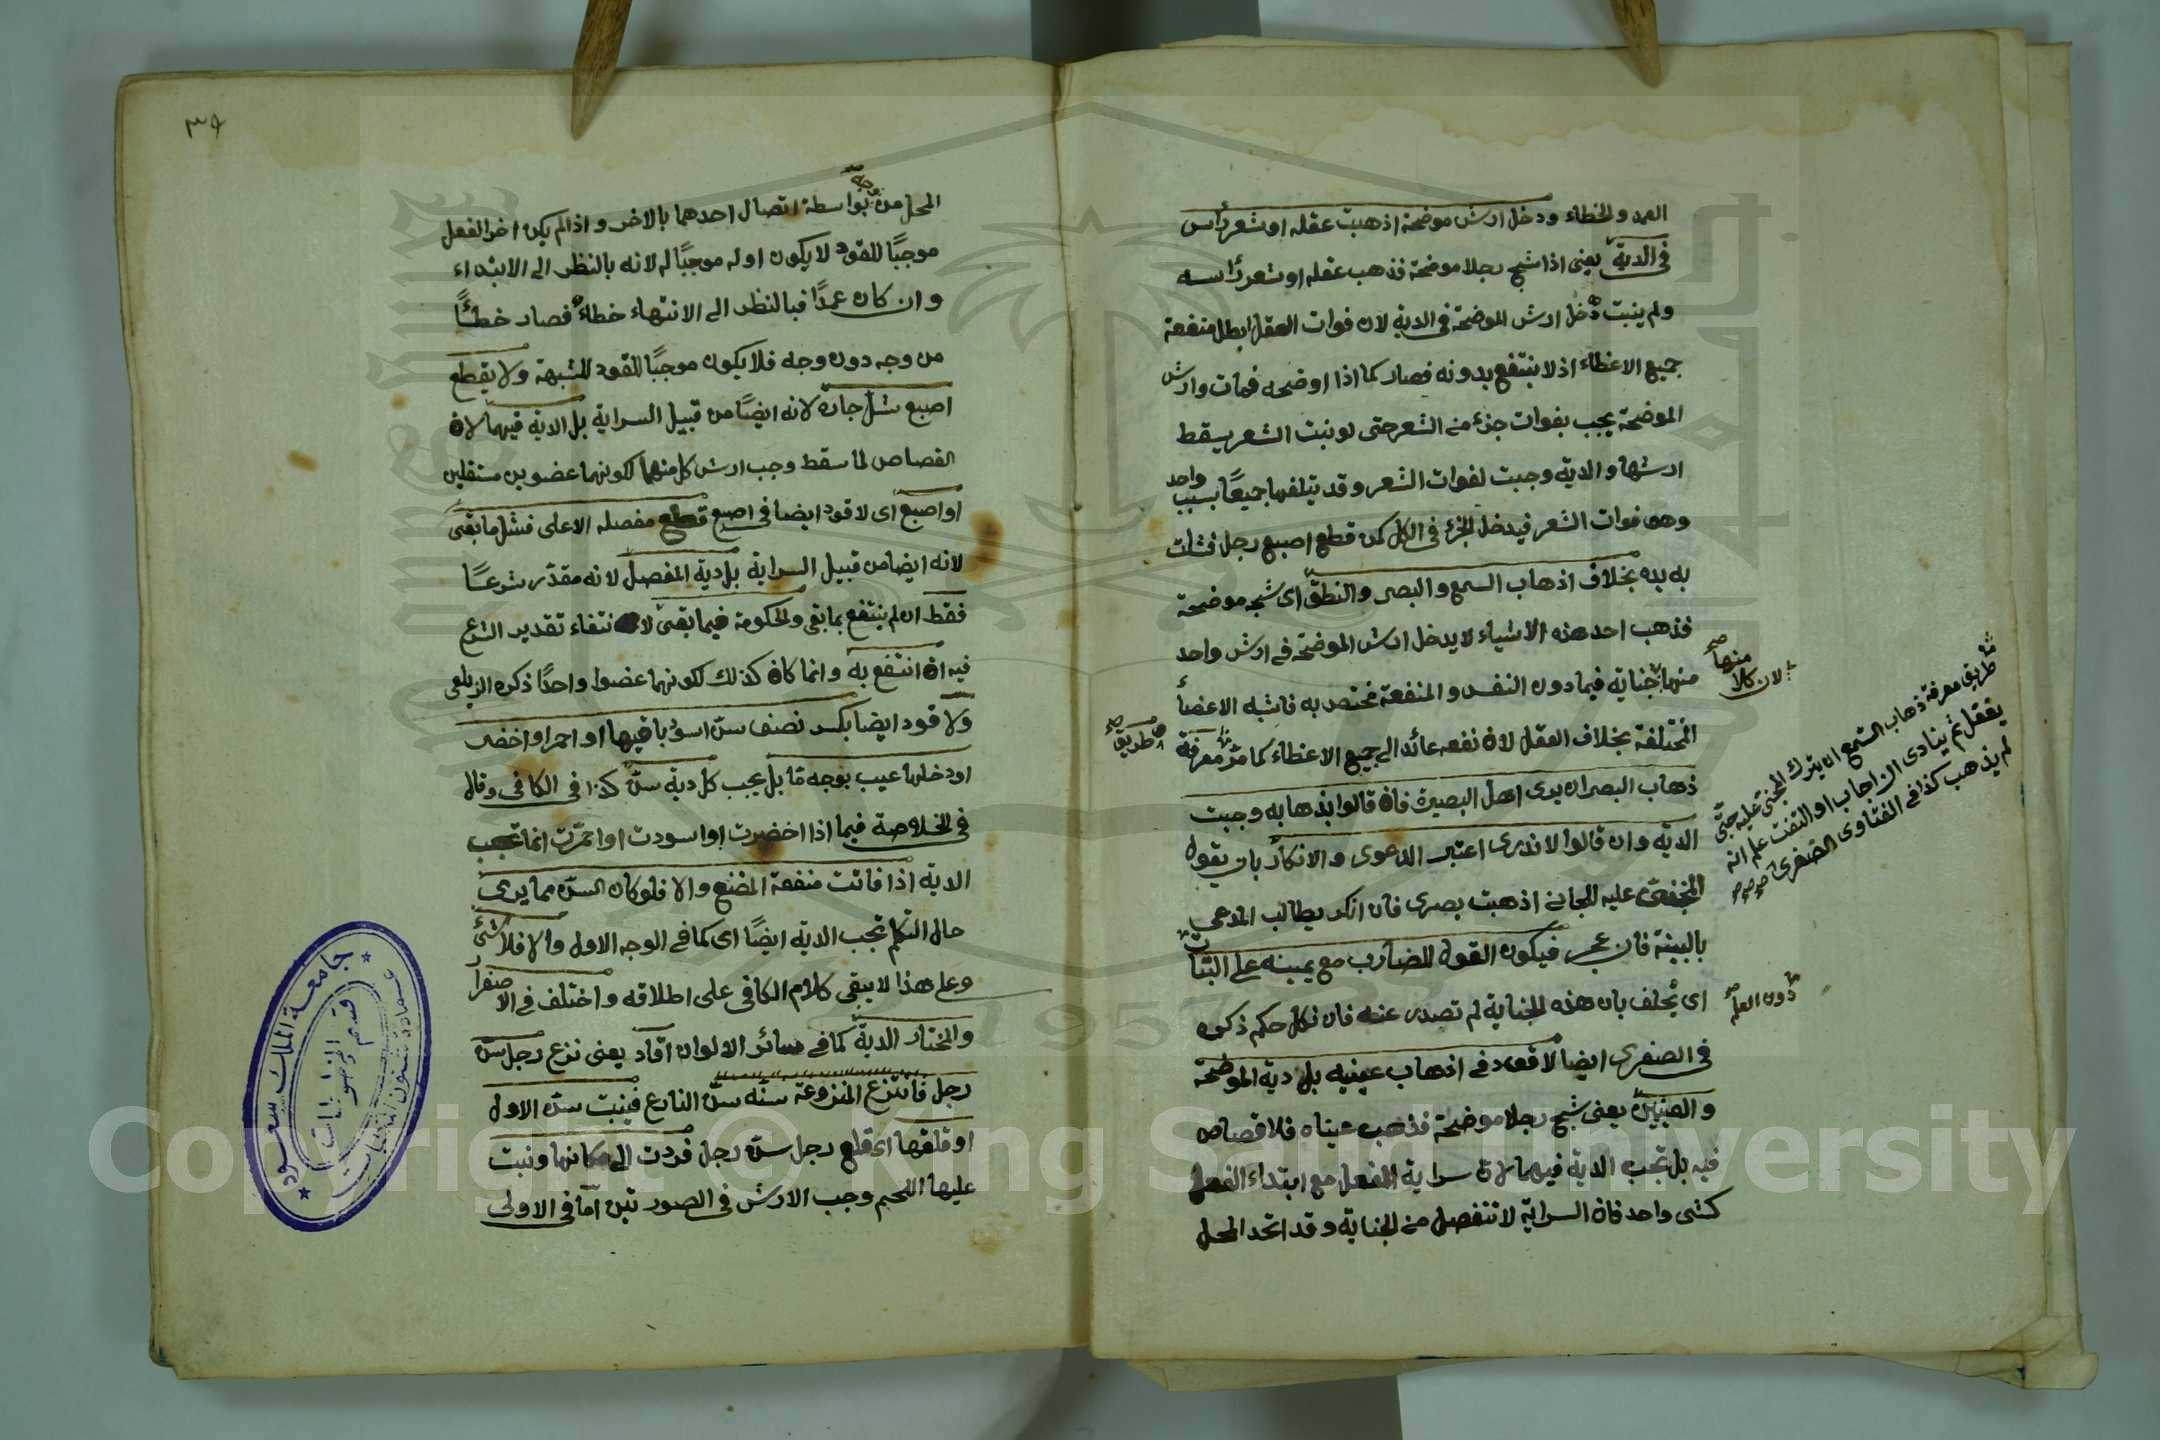 العمد والخطاء ودخل ارش موضحة اذهبت عقله او شعر رأس
في الدية يعنى اذا شج رجلا موضحة فذهب عقله او شعر رأسه
ولم ينبت دخل ارش الموضحة في الدية لان فوات العقل ابطل منفعة
جميع الاعضاء اذ لا ينتفع بدونه فصار كما اذا اوضحه فمات وارش
الموضحة يجب بفوات جزء من الشعر حتى لو نبت الشعر يسقط
ارشها والدية وجبت لفوات الشعر وقد يتلفها جميعًا بسبب واحد
وهو فوات الشعر فيدخل الجزء في الكل كمن قطع اصبع رجل فشلت
به يده بخلاف اذهاب السمع والبصر والنطق اى شجه موضحة
فذهب احد هذه الاشياء لا يدخل ارش الموضحة في ارش واحد
منها جناية فيما دون النفس والمنفعة مختص به فاشبه الاعضأ
المختلفة بخلاف العقل لان نفعه عائد الى جميع الاعضاء كما مر معرفة
ذهاب البصر ان يرى اهل البصيرة فان قالوا بذهابه وجبت
الدية وان قالوا لا ندرى اعتبر الدعوى والانكار بان يقول
المجنى عليه للجاني اذهبت بصرى فان انكر يطالب المدعى
بالبينة فان عجز فيكون القول للضارب مع يمينه على البتات
اى يحلف بان هذه الجناية لم تصدر عنه فان نكل حكم ذكره
في الصغرى ايضا لا قود في اذهاب عينيه بل دية الموضحة
والعينين يعنى شج رجلا موضحة فذهب عيناه فلا قصاص
فيه بل تجب الدية فيهما لان سراية الفعل مع ابتداء الفعل
كشى واحد فان السراية لا تنفصل من الجناية وقد اتحد المحل
لان كلا منها صح
طريق صح
طريق معرفة ذهاب السمع ان يترك المجنى عليه حتى
يغفل ثم ينادى ان اجاب او التفت علم انه
لم يذهب كذا في الفتاوى الصغرى
دون العلم صح
٣٩
المحل من وجه بواسطة اتصال احدهما بالاخر واذا لم يكن اخر الفعل
موجبًا للقود لا يكون اوله موجبًا له لانه بالنظر الى الابتداء
وان كان عمدًا فبالنظر الى الانتهاء خطاء فصار خطأً
من وجه دون وجه فلا يكون موجبًا للقود للشبهة ولا يقطع
اصبع شل جاره لانه ايضًا من قبيل السراية بل الدية فيهما لان
القصاص لما سقط وجب ارش كل منهما لكونهما عضوين مستقلين
او اصبع اى لا قود ايضا في اصبع قطع مفصله الاعلى فشل ما بقى
لانه ايضا من قبيل السراية بل دية المفصل لانه مقدر شرعًا
فقط ان لم ينتفع بما بقى والحكومة فيما بقى لانتفاء تقدير الشرع
فيه ان انتفع به وانما كان كذلك لكونهما عضوا واحدًا ذكره الزيلعى
ولا قود ايضا بكسر نصف سن اسود باقيها او احمر او اخضر
او دخلها عيب بوجه قابل يجب كل دية سن كذا في الكافى وقال
في الخلاصة فيما اذا اخضرت او اسودت او احمرت انما تجب
الدية اذا فاتت منفعة المضغ والا فلو كان السن مما يرى
حال التكلم تجب الدية ايضًا اى كما في الوجه الاول والا فلا شئ
وعلى هذا لا يبقى كلام الكافى على اطلاقه واختلف في الاصفرا
والمختار الدية كما في سائر الالوان اقاد يعنى نزع رجل سن
رجل فانتزع المنزوعة سنه سن النازع فنبت سن الاول
او قلعها اى قلع رجل سن رجل فردت الى مكانها ونبت
عليها اللحم وجب الارش في الصورتين اما في الاولى
جامعة الملك سعود
عمادة شئون المكتبات
قسم المخطوطات
Copyright © King Saud University
1957